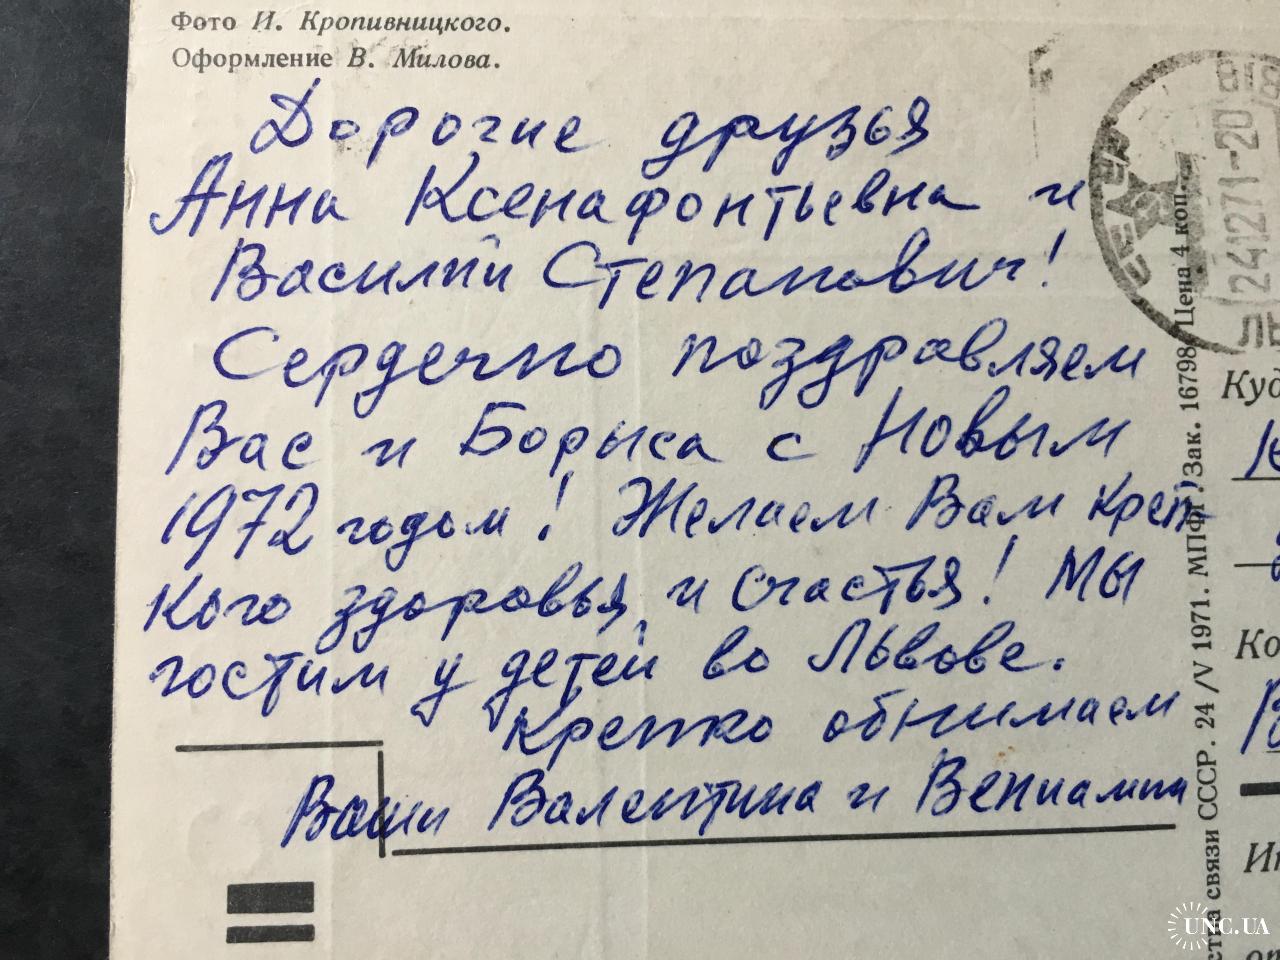 Фото И. Кропивницкого.
Оформление В. Милова.
Дорогие друзья
Анна Ксенафонтьевна и
Василий Степанович!
Сердечно поздравляем
Вас и Борыса с Новым
1972 годом! Желаем Вам креп-
кого здоровья и счастья! Мы
гостим у детей во Львове.
Крепко обнимаем
Ваши Валентина и Вениамин
241271-20
ЛЬ
стра связи СССР. 24/V 1971. МПФГ. Зак. 16798. Цена 4 коп.
Куд
Ко
Ин
UNC.UA